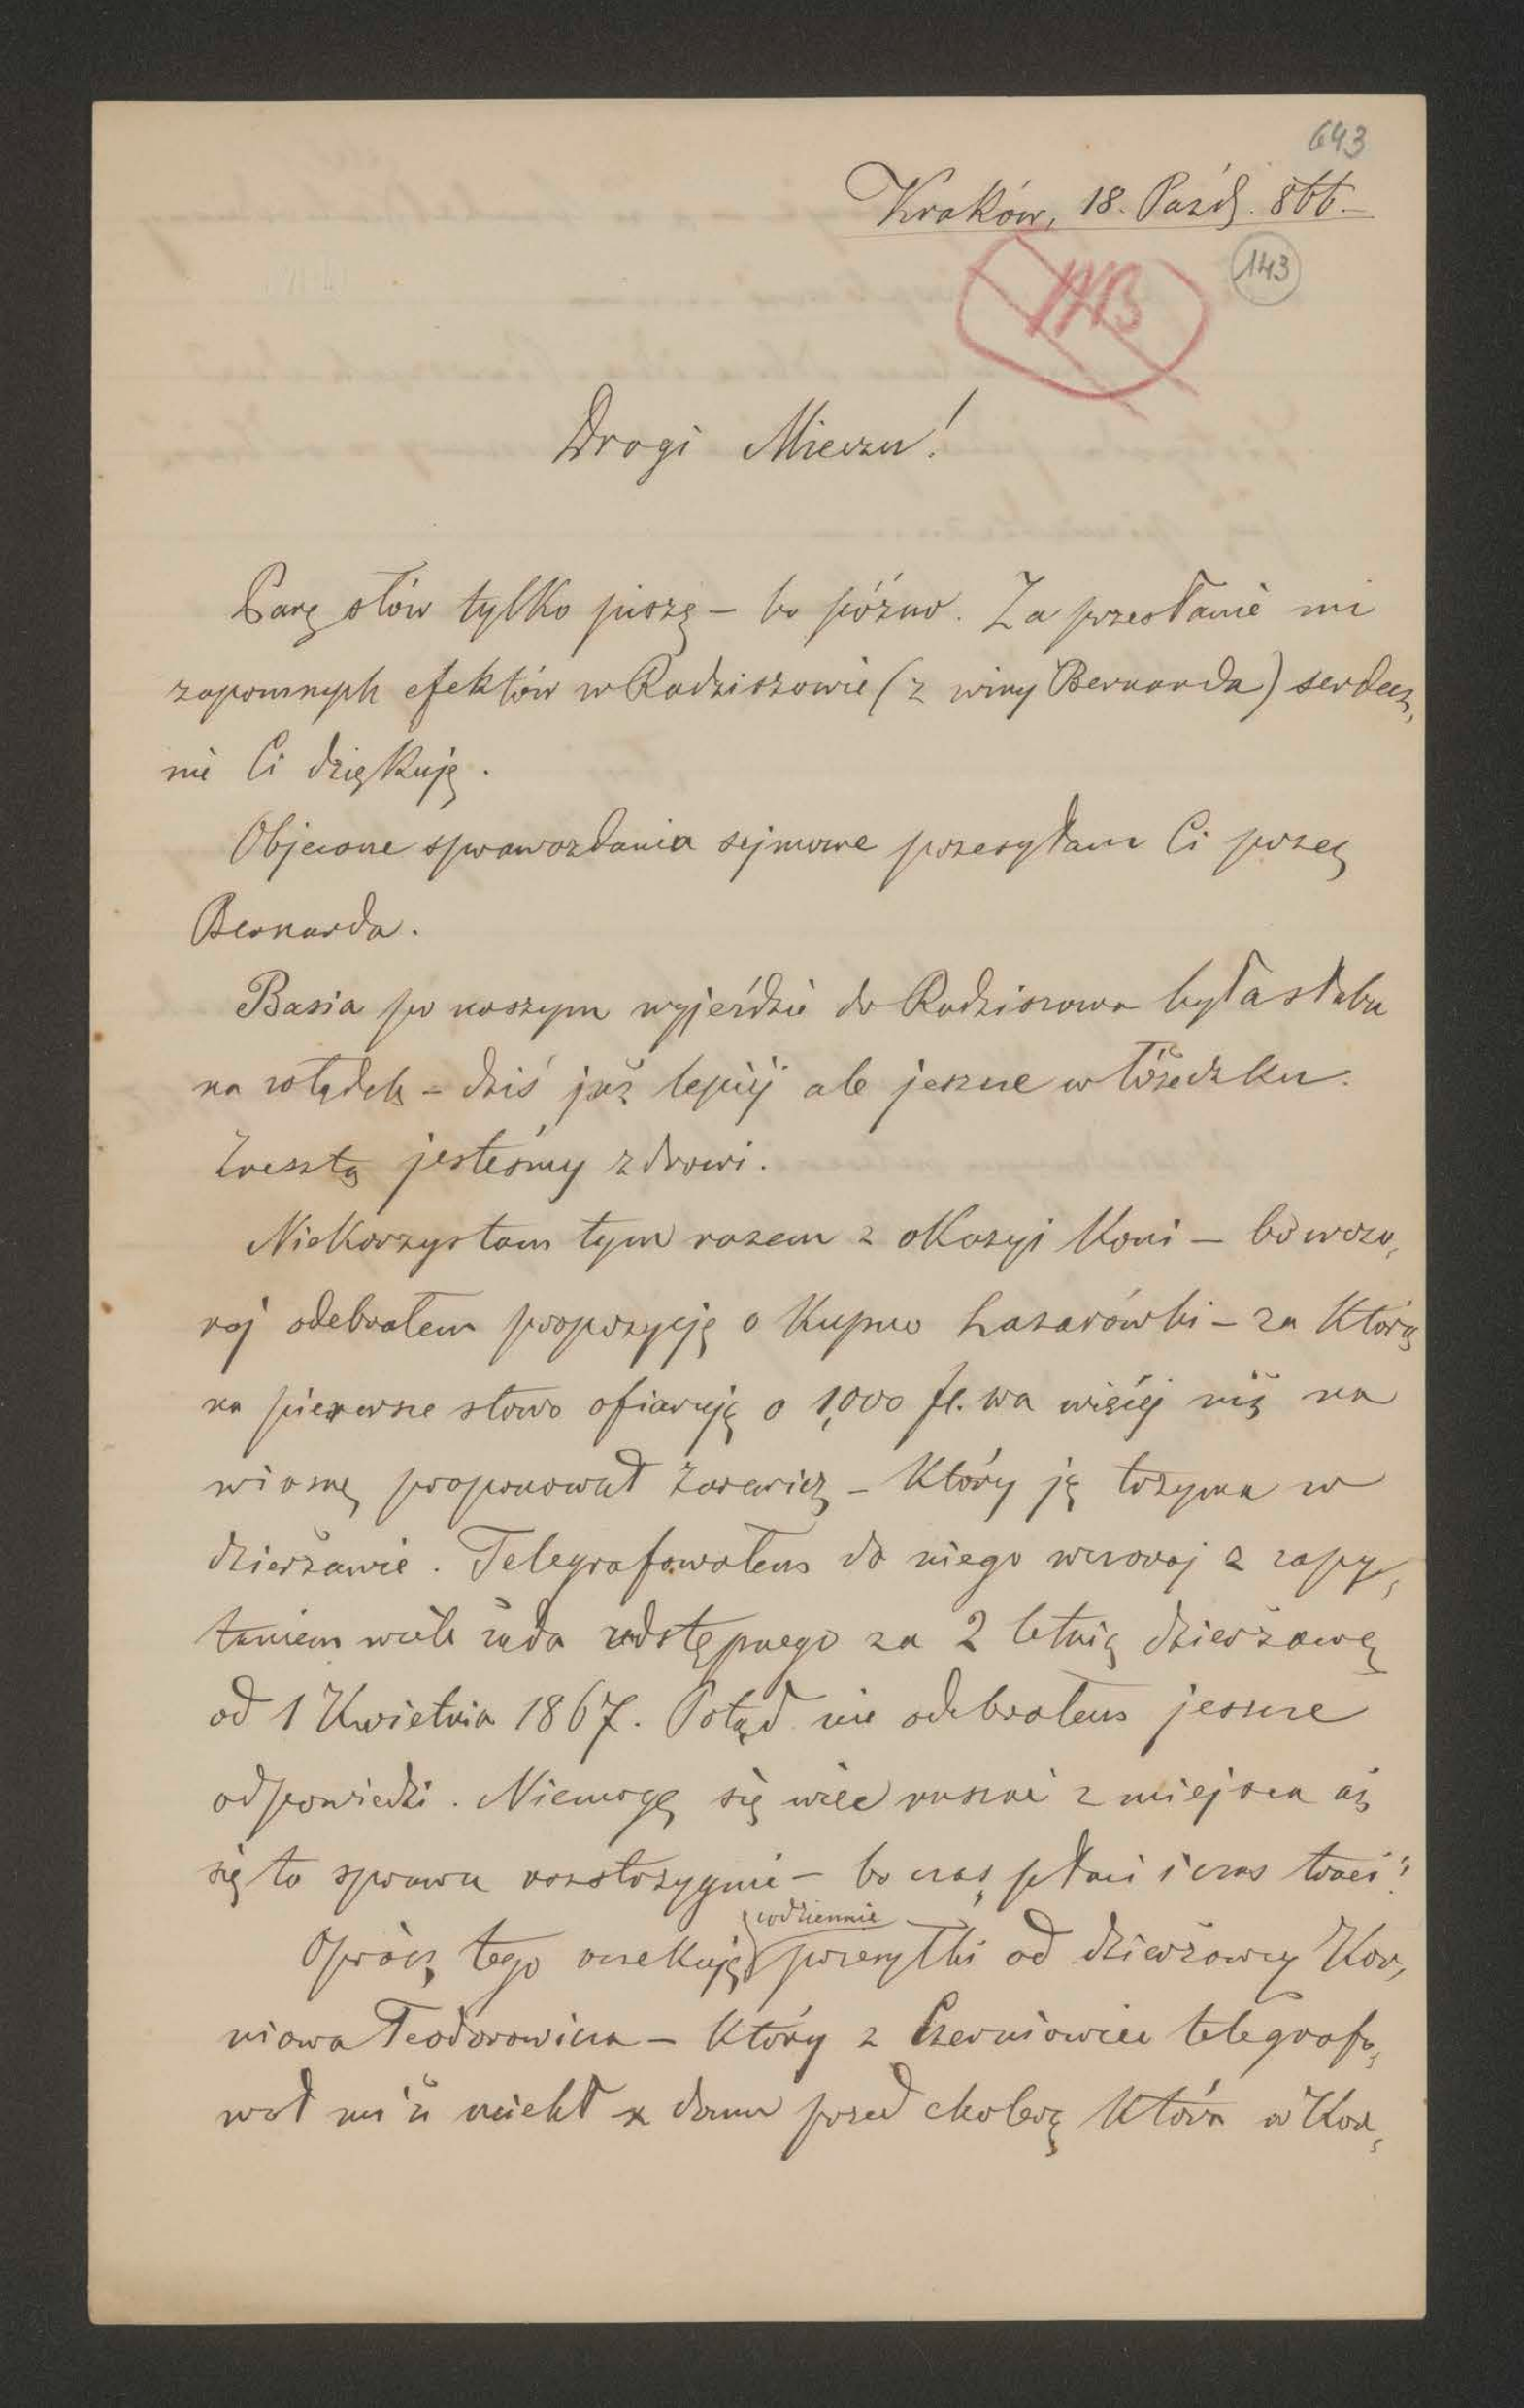 643
Kraków, 18. Paźdz. 866.
143
Drogi Mieczu!
Parę słów tylko piszę – bo późno. Za przesłanie mi
zapomnych efektów w Radziszowie (z winy Bernarda) serdecz,
nie Ci dziękuję.
Objecane sprawozdania sejmowe przesyłam Ci przez
Bernarda.
Basia po naszym wyjeździe do Radziszowa była słaba
na żołądek – dziś już lepiéj ale jeszcze w łóżeczku.
Zresztą jesteśmy zdrowi.
Niekorzystam tym razem z okazyi koni – bo wczo,
raj odebrałem propozycję o kupno Lazarówki – za którą
na pierwsze słowo ofiarują o 1,000 fl. wa więcéj niż na
wiosnę proponował – który ją trzyma w
dzierżawie. Telegrafowałem do niego wczoraj z zapy,
taniem wiele żąda odstępnego za 2 letnią dzierżawę
od 1 Kwietnia 1867. Potąd nie odebrałem jeszcze
odpowiedzi. Niemogę się więc ruszać z miejsca aż
się ta sprawa rozstrzygnie – bo czas płaci i czas traci!
codziennie
Oprócz tego oczekuję przesyłki od dzierżawcy Kor,
niowa Teodorowicza – który z Czerniowiec telegrafo,
wał mi iż uciekł z domu przed cholerą która w Kor,